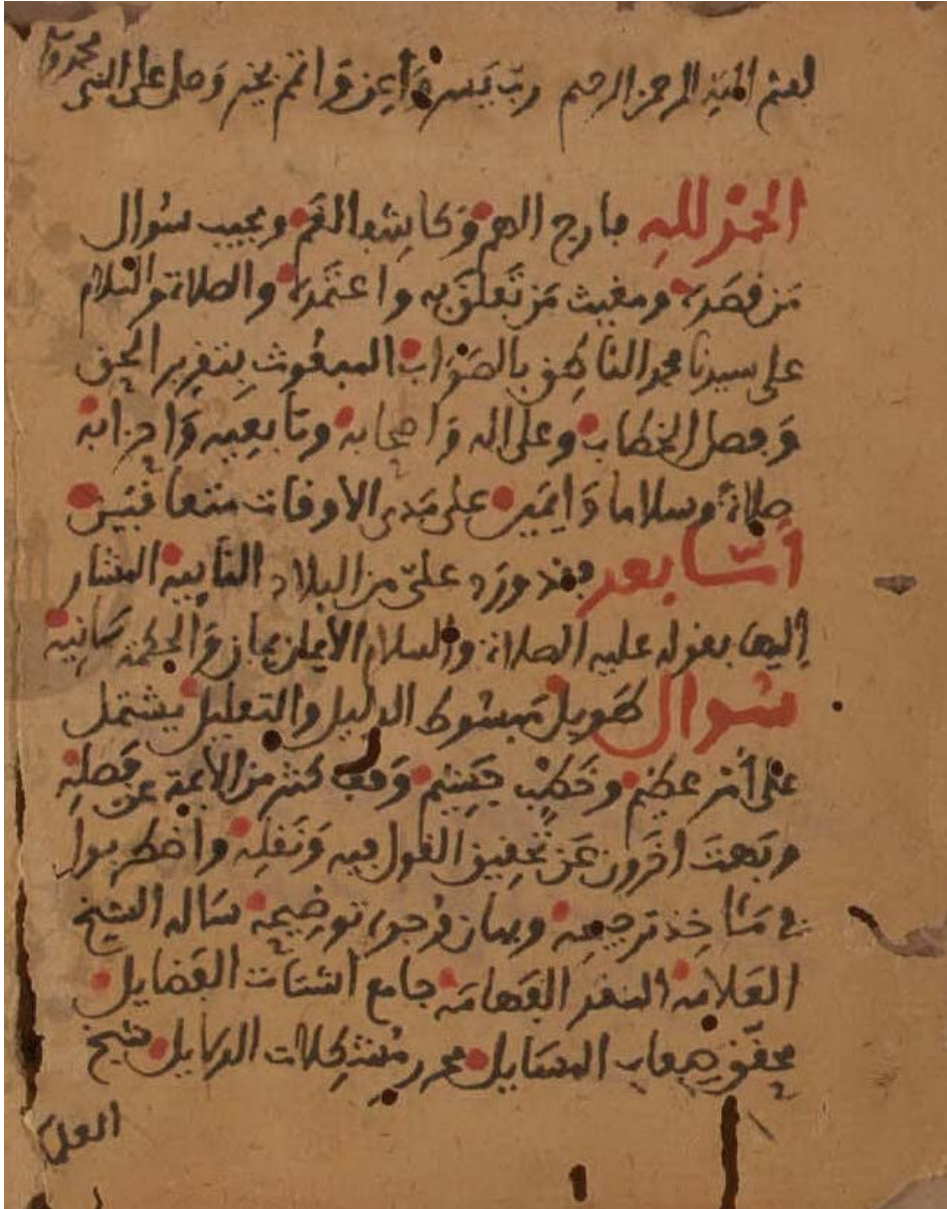 بسم الله الرحمن الرحيم رب يسر وأعن واتم بخير وصل على النبي محمد وآله
الحمد لله فارج الهم وكاشف الغم ومجيب سوال
من قصده ومغيث من تعلق به واعتمده والصلاة والسلام
على سيدنا محمد الناطق بالصواب المبعوث بتقرير الحق
وفصل الخطاب وعلى اله واصحابه وتابعيه واحزابه
صلاة وسلاما دايمين على مدى الاوقات متعاقبين
أما بعد فقد ورد علي من البلاد النايية المشار
إليها بقوله عليه الصلاة والسلام الأيمان يمان والحكمة يمانية
سوال طويل مبسوط الدليل والتعليل يشتمل
على أمر عظيم وخطب جسيم وقف كثير من الأيمة عن فصله
وبهت اخرون عن تحقيق القول فيه ونقله واضطربوا
في مآخذ ترجيحه وبيان وجوه توضيحه ساله الشيخ
العلامة المفرد الفهامة جامع اشتات الفضايل
محقق صعاب المسايل محرر مشكلات الدلايل شيخ
العلما